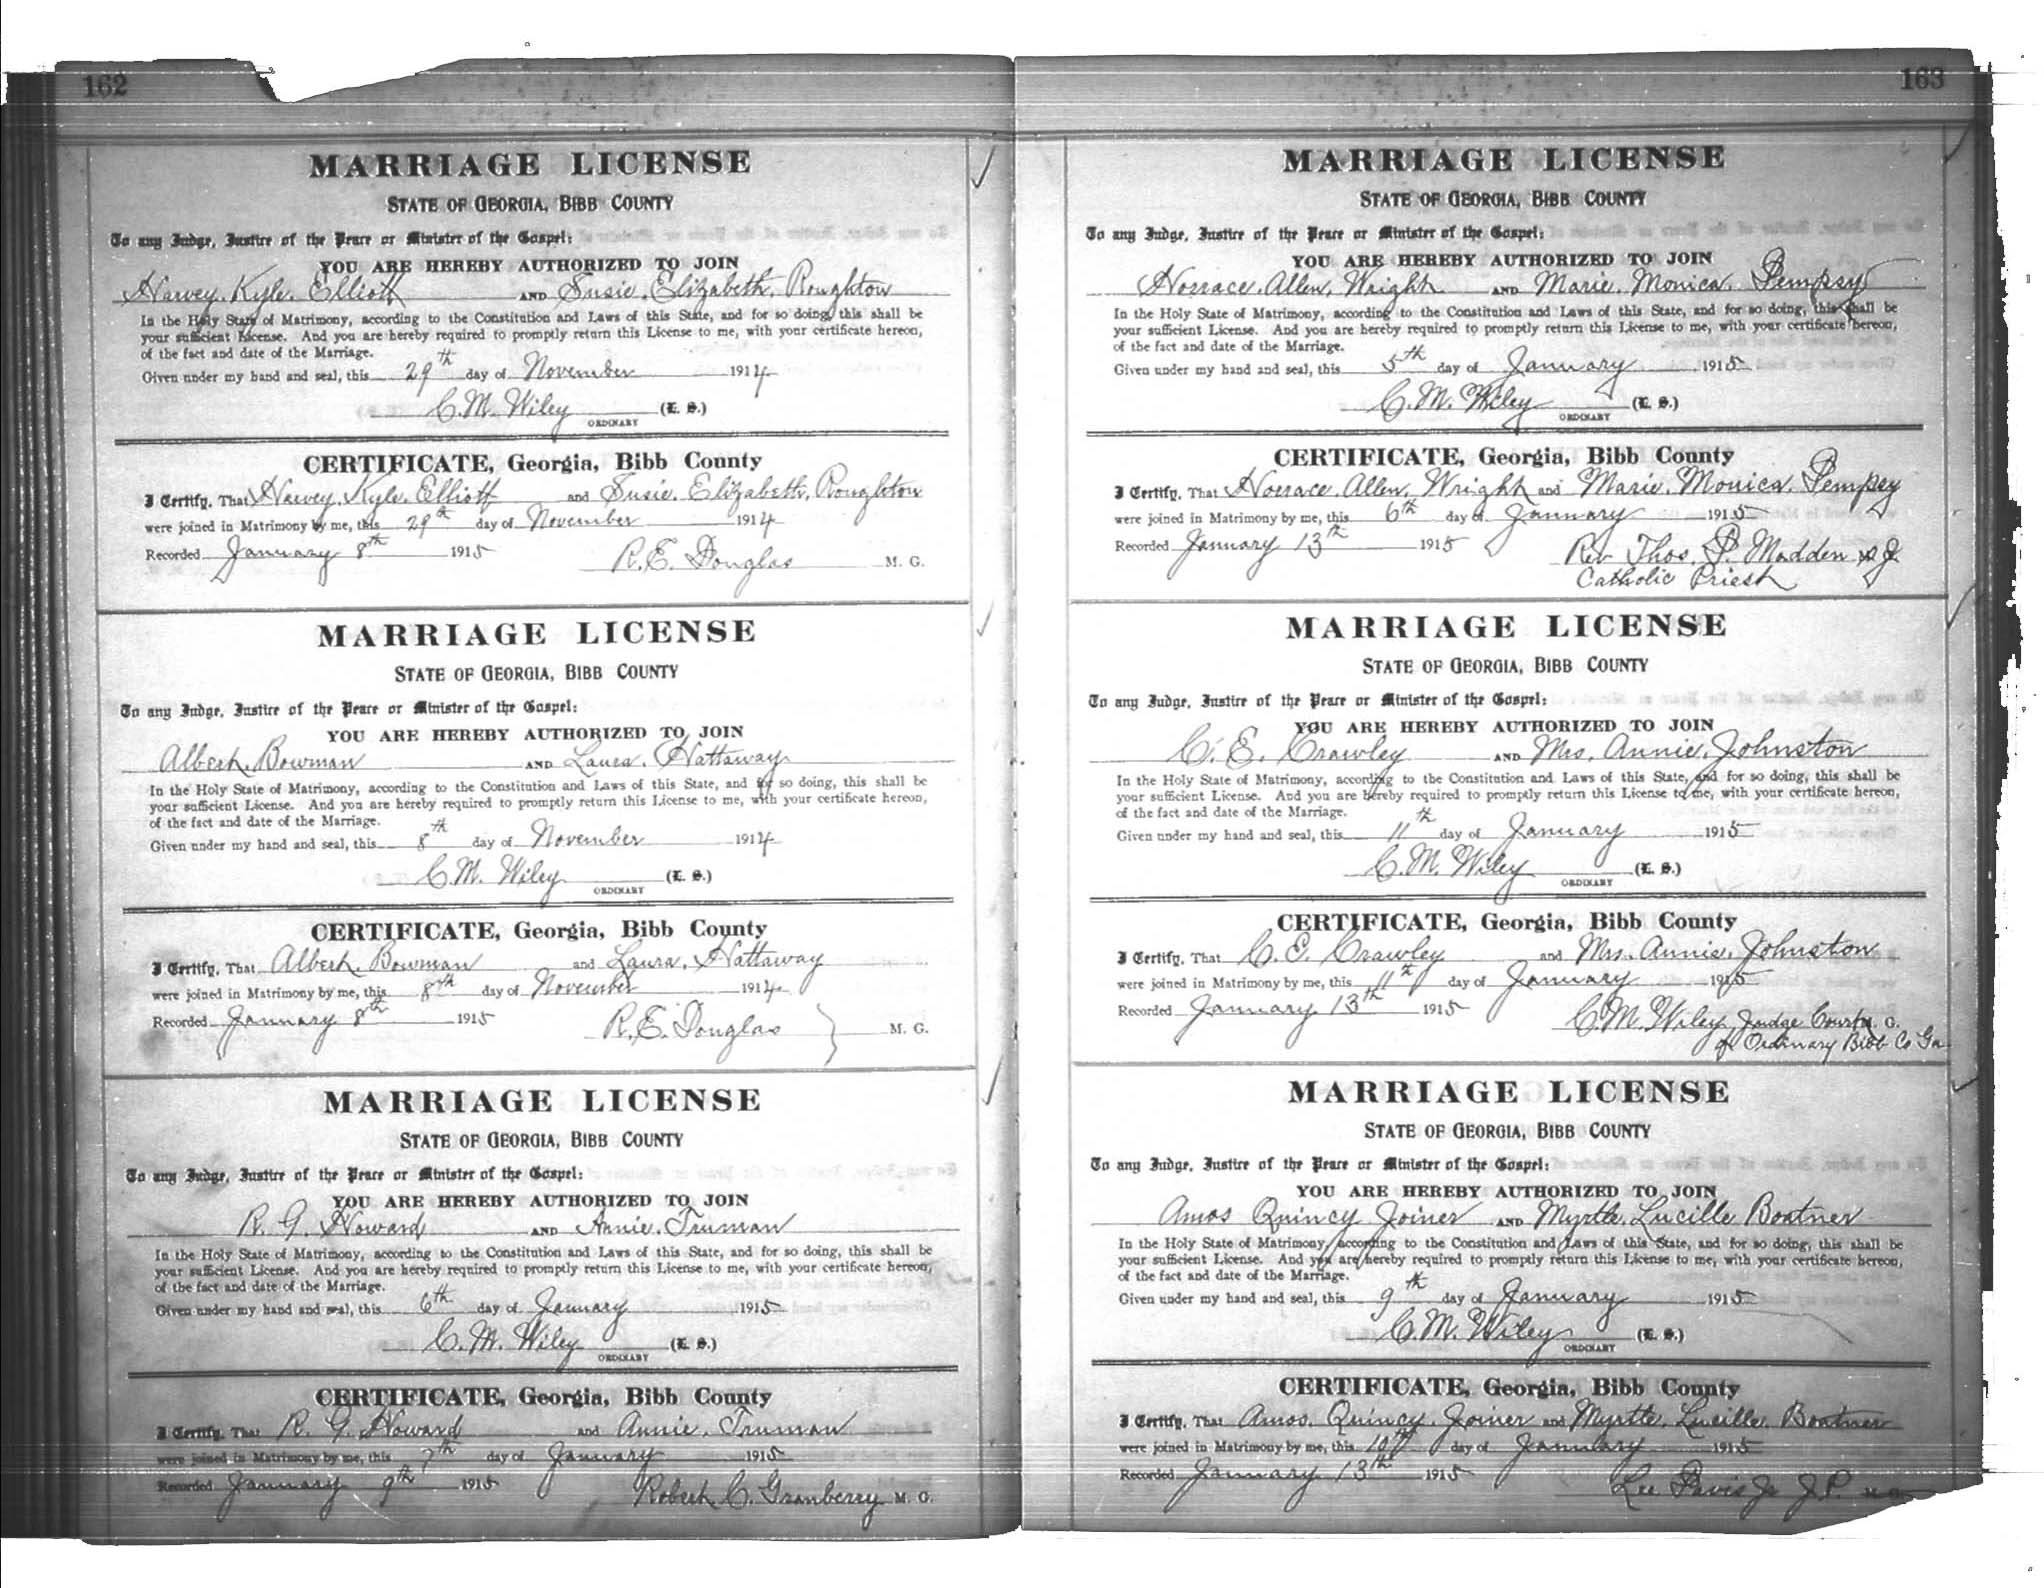 162
MARRIAGE LICENSE
STATE OF GEORGIA, BIBB COUNTY
To any Judge, Justice of the Peace or Minister of the Gospel:
YOU ARE HEREBY AUTHORIZED TO JOIN
Harvey Kyle Elliott AND Susie Elizabeth Roughton
In the Holy State of Matrimony, according to the Constitution and Laws of this State, and for so doing, this shall be
your sufficient License. And you are hereby required to promptly return this License to me, with your certificate hereon,
of the fact and date of the Marriage.
Given under my hand and seal, this 29th day of November 1914
C. M. Wiley (L. S.)
ORDINARY
CERTIFICATE, Georgia, Bibb County
I Certify, That Harvey Kyle Elliott and Susie Elizabeth Roughton
were joined in Matrimony by me, this 29th day of November 1914
Recorded January 8th 1915 R. E. Douglas M. G.
MARRIAGE LICENSE
STATE OF GEORGIA, BIBB COUNTY
To any Judge, Justice of the Peace or Minister of the Gospel:
YOU ARE HEREBY AUTHORIZED TO JOIN
Albert Bowman AND Laura Hattaway
In the Holy State of Matrimony, according to the Constitution and Laws of this State, and for so doing, this shall be
your sufficient License. And you are hereby required to promptly return this License to me, with your certificate hereon,
of the fact and date of the Marriage.
Given under my hand and seal, this 8th day of November 1914
C. M. Wiley (L. S.)
ORDINARY
CERTIFICATE, Georgia, Bibb County
I Certify, That Albert Bowman and Laura Hattaway
were joined in Matrimony by me, this 8th day of November 1914
Recorded January 8th 1915 R. E. Douglas } M. G.
MARRIAGE LICENSE
STATE OF GEORGIA, BIBB COUNTY
To any Judge, Justice of the Peace or Minister of the Gospel:
YOU ARE HEREBY AUTHORIZED TO JOIN
R. G. Howard AND Annie Truman
In the Holy State of Matrimony, according to the Constitution and Laws of this State, and for so doing, this shall be
your sufficient License. And you are hereby required to promptly return this License to me, with your certificate hereon,
of the fact and date of the Marriage.
Given under my hand and seal, this 6th day of January 1915
C. M. Wiley (L. S.)
ORDINARY
CERTIFICATE, Georgia, Bibb County
I Certify, That R. G. Howard and Annie Truman
were joined in Matrimony by me, this 7th day of January 1915
Recorded January 9th 1915 Robert C. Granberry M. G.
163
MARRIAGE LICENSE
STATE OF GEORGIA, BIBB COUNTY
To any Judge, Justice of the Peace or Minister of the Gospel:
YOU ARE HEREBY AUTHORIZED TO JOIN
Horrace Allen Wright AND Marie Monica Dempsy
In the Holy State of Matrimony, according to the Constitution and Laws of this State, and for so doing, this shall be
your sufficient License. And you are hereby required to promptly return this License to me, with your certificate hereon,
of the fact and date of the Marriage.
Given under my hand and seal, this 5th day of January 1915
C. M. Wiley (L. S.)
ORDINARY
CERTIFICATE, Georgia, Bibb County
I Certify, That Horrace Allen Wright and Marie Monica Dempsy
were joined in Matrimony by me, this 6th day of January 1915
Recorded January 13th 1915 Rev Thos. P. Madden S J
Catholic Priest
MARRIAGE LICENSE
STATE OF GEORGIA, BIBB COUNTY
To any Judge, Justice of the Peace or Minister of the Gospel:
YOU ARE HEREBY AUTHORIZED TO JOIN
C. E. Crawley AND Mrs. Annie Johnston
In the Holy State of Matrimony, according to the Constitution and Laws of this State, and for so doing, this shall be
your sufficient License. And you are hereby required to promptly return this License to me, with your certificate hereon,
of the fact and date of the Marriage.
Given under my hand and seal, this 11th day of January 1915
C. M. Wiley (L. S.)
ORDINARY
CERTIFICATE, Georgia, Bibb County
I Certify, That C. E. Crawley and Mrs. Annie Johnston
were joined in Matrimony by me, this 11th day of January 1915
Recorded January 13th 1915 C. M. Wiley Judge Court G.
of Ordinary Bibb Co Ga
MARRIAGE LICENSE
STATE OF GEORGIA, BIBB COUNTY
To any Judge, Justice of the Peace or Minister of the Gospel:
YOU ARE HEREBY AUTHORIZED TO JOIN
Amos Quincy Joiner AND Myrtle Lucille Boatner
In the Holy State of Matrimony, according to the Constitution and Laws of this State, and for so doing, this shall be
your sufficient License. And you are hereby required to promptly return this License to me, with your certificate hereon,
of the fact and date of the Marriage.
Given under my hand and seal, this 9th day of January 1915
C. M. Wiley (L. S.)
ORDINARY
CERTIFICATE, Georgia, Bibb County
I Certify, That Amos Quincy Joiner and Myrtle Lucille Boatner
were joined in Matrimony by me, this 10th day of January 1915
Recorded January 13th 1915 Lee Davis Jr J. P.